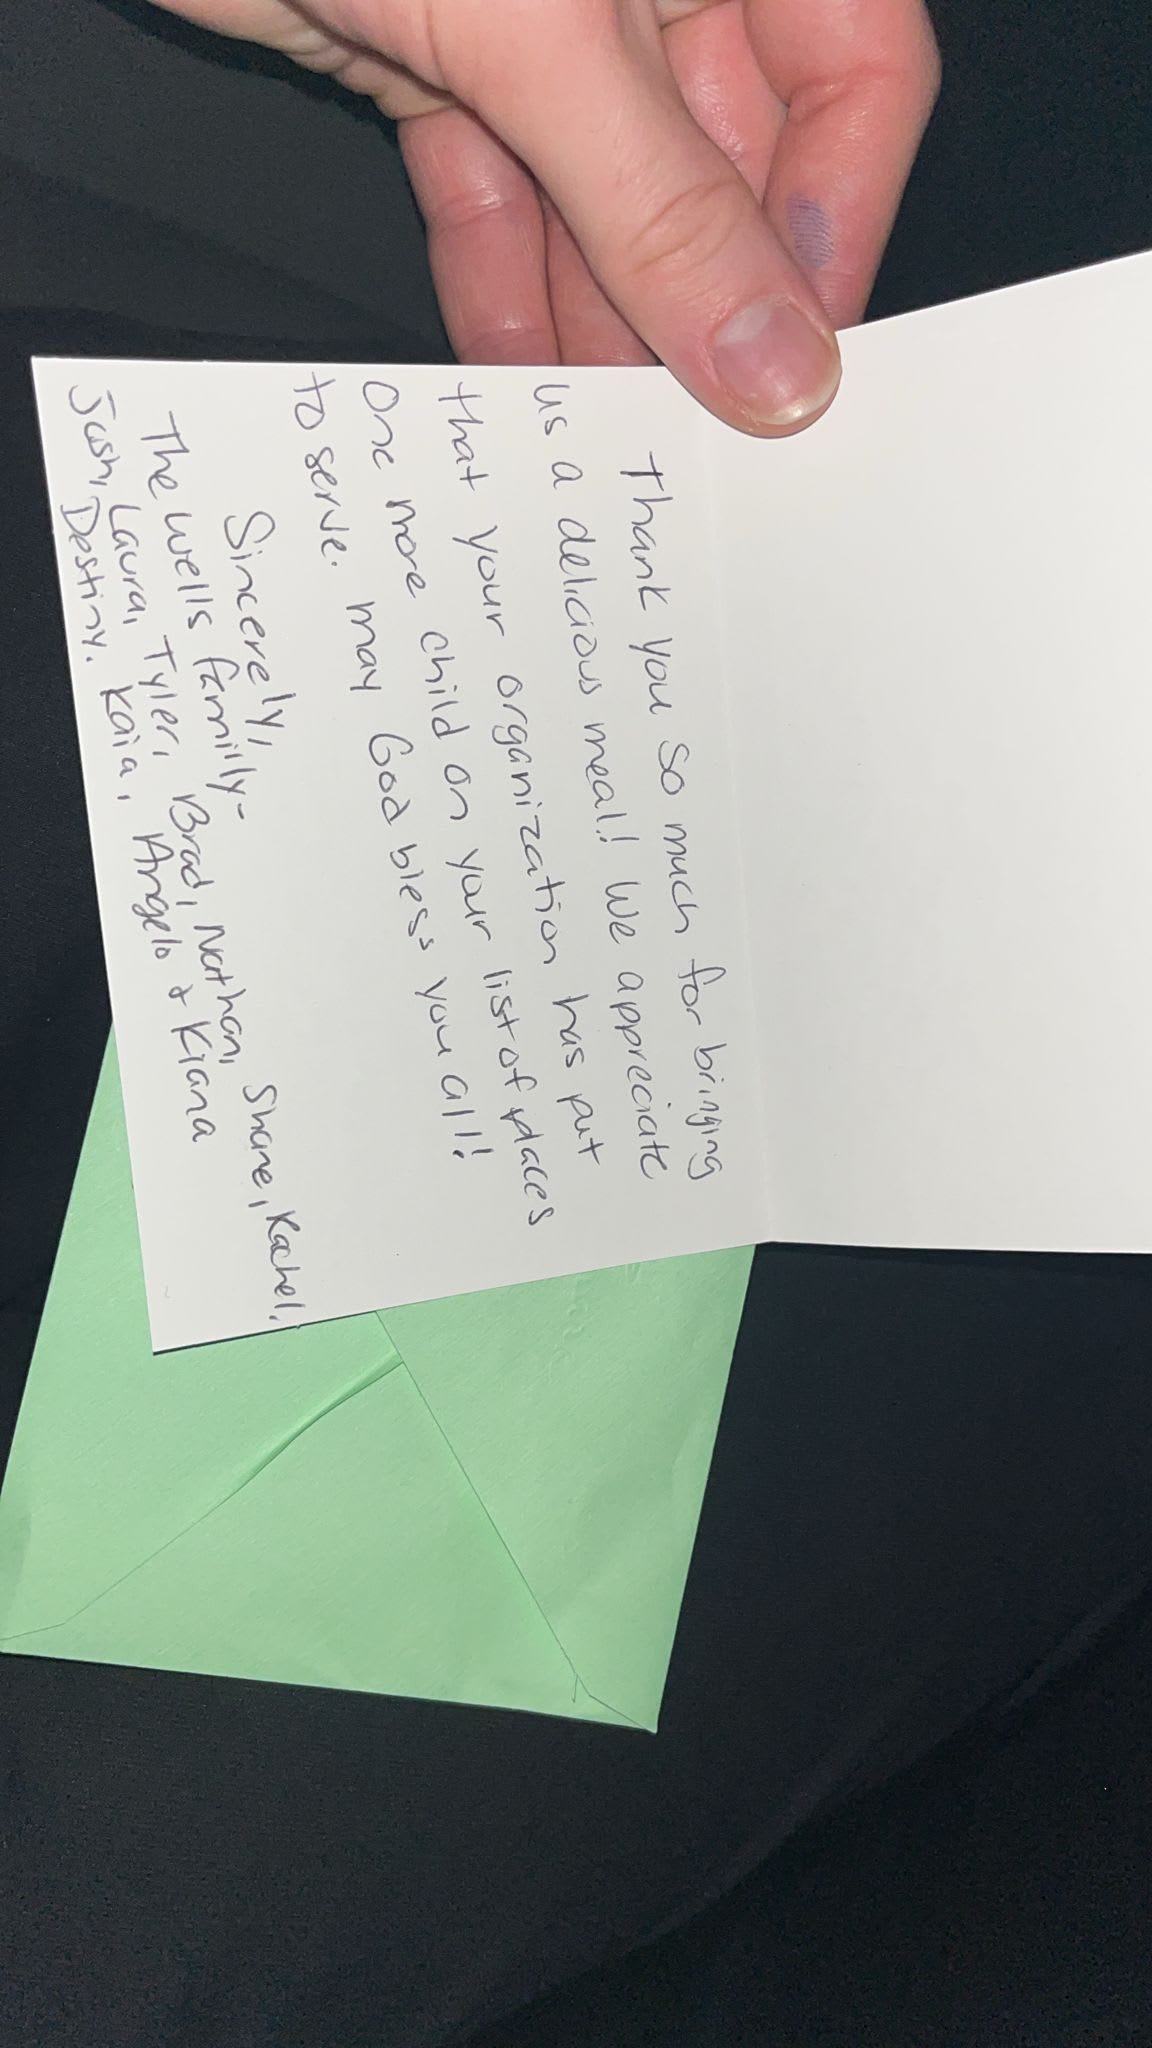 Thank you so much for bringing
us a delicious meal! We appreciate
that your organization has put
One more child on your list of places
to serve. may God bless you all!
Sincerely,
The Wells family-
Josh, Laura, Tyler, Brad, Nathan, Shane, Rachel,
Destiny. Kaia, Angelo & Kiana